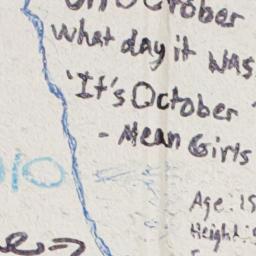 October
what day it was
"It's October
- Mean Girls
Age: 15
Height: